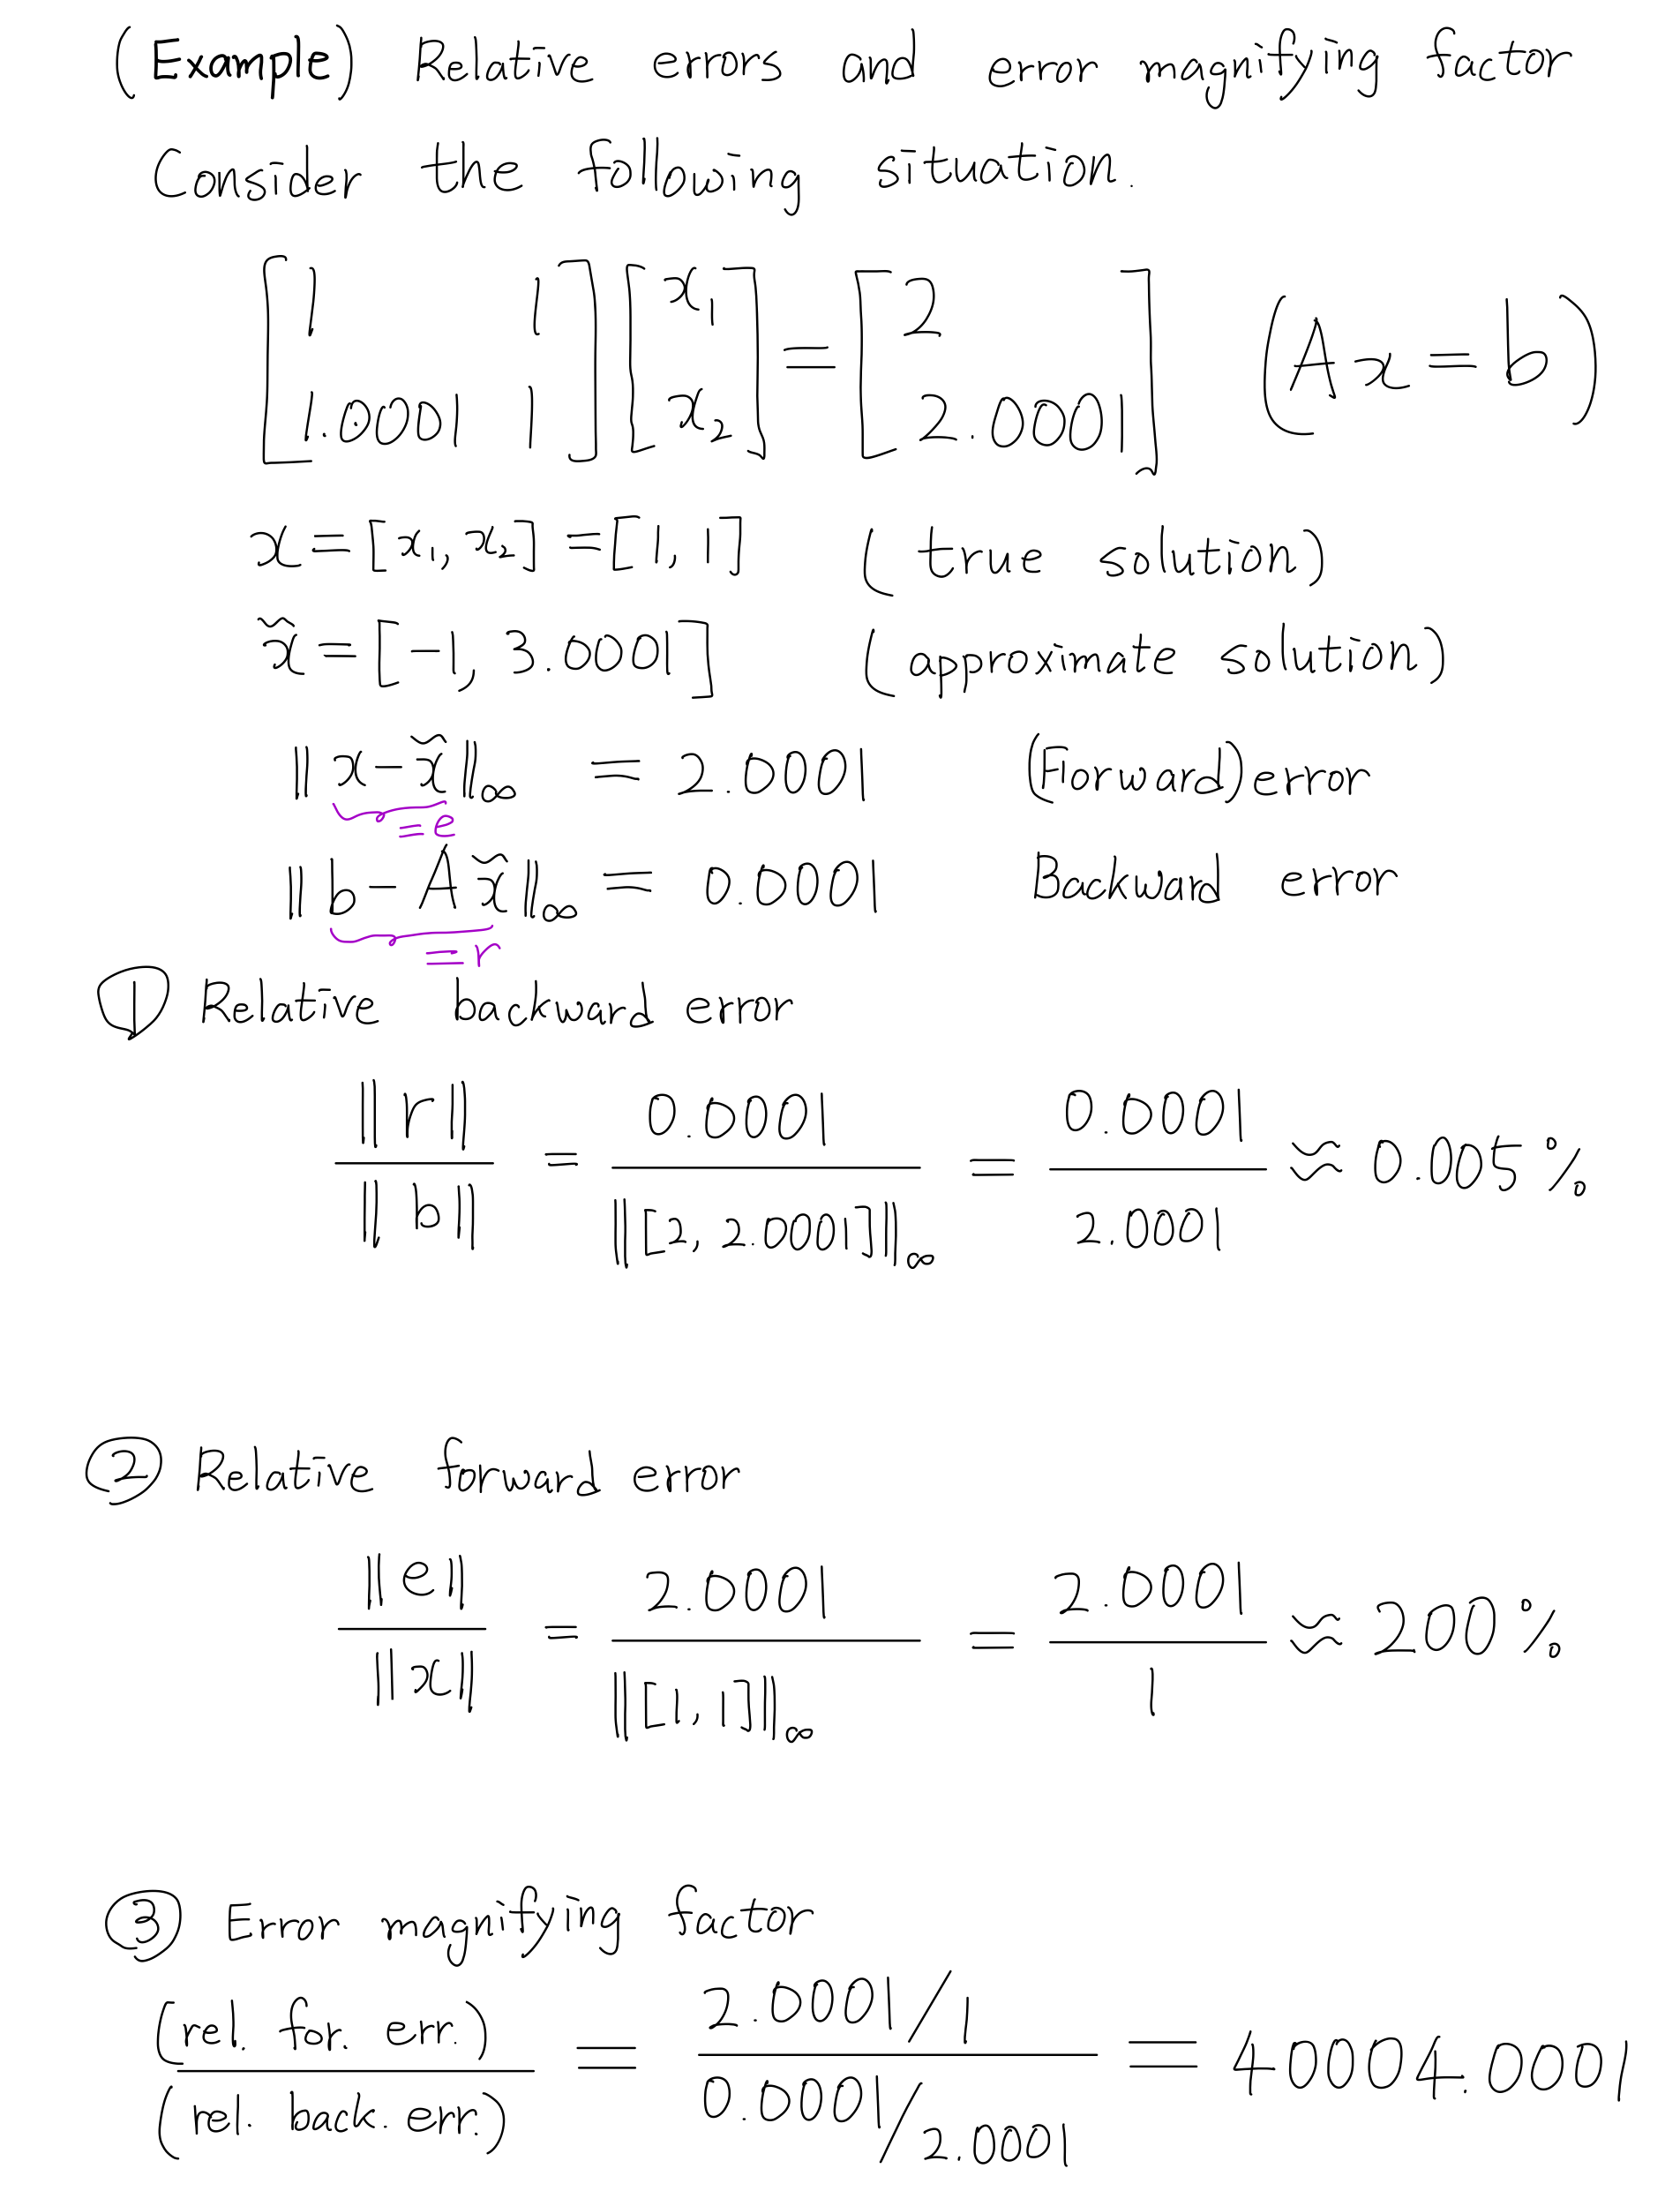 (Example) Relative errors and error magnifying factor
Consider the following situation.
[1 1; 1.0001 1] [x₁; x₂] = [2; 2.0001] (Ax = b)
x = [x₁, x₂] = [1, 1] (true solution)
x̃ = [-1, 3.0001] (approximate solution)
‖x - x̃‖∞ = 2.0001 (Forward) error
= e
‖b - Ax̃‖∞ = 0.0001 Backward error
= r
① Relative backward error
‖r‖ / ‖b‖ = 0.0001 / ‖[2, 2.0001]‖∞ = 0.0001 / 2.0001 ≈ 0.005 %
② Relative forward error
‖e‖ / ‖x‖ = 2.0001 / ‖[1, 1]‖∞ = 2.0001 / 1 ≈ 200 %
③ Error magnifying factor
(rel. for. err.) / (rel. back. err.) = (2.0001/1) / (0.0001/2.0001) = 40004.0001